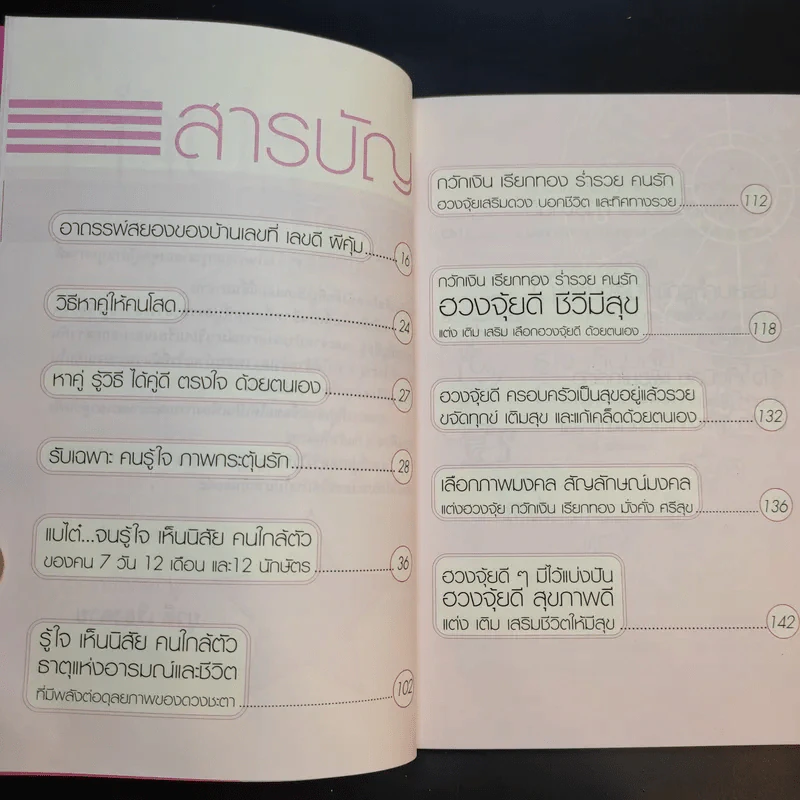 สารบัญ
อาถรรพ์สยองของบ้านเลขที่ เลขดี ผีคุ้ม........16
วิธีหาคู่ให้คนโสด........24
หาคู่ รู้วิธี ได้คู่ดี ตรงใจ ด้วยตนเอง........27
รับเฉพาะ คนรู้ใจ ภาพกระตุ้นรัก........28
แบไต๋...จนรู้ใจ เห็นนิสัย คนใกล้ตัว
ของคน 7 วัน 12 เดือน และ12 นักษัตร........36
รู้ใจ เห็นนิสัย คนใกล้ตัว
ธาตุแห่งอารมณ์และชีวิต
ที่มีพลังต่อดุลยภาพของดวงชะตา........102
กวักเงิน เรียกทอง ร่ำรวย คนรัก
ฮวงจุ้ยเสริมดวง บอกชีวิต และทิศทางรวย........112
กวักเงิน เรียกทอง ร่ำรวย คนรัก
ฮวงจุ้ยดี ชีวีมีสุข
แต่ง เติม เสริม เลือกฮวงจุ้ยดี ด้วยตนเอง........118
ฮวงจุ้ยดี ครอบครัวเป็นสุขอยู่แล้วรวย
ขจัดทุกข์ เติมสุข และแก้เคล็ดด้วยตนเอง........132
เลือกภาพมงคล สัญลักษณ์มงคล
แต่งฮวงจุ้ย กวักเงิน เรียกทอง มั่งคั่ง ศรีสุข........136
ฮวงจุ้ยดี ๆ มีไว้แบ่งปัน
ฮวงจุ้ยดี สุขภาพดี
แต่ง เติม เสริมชีวิตให้มีสุข........142